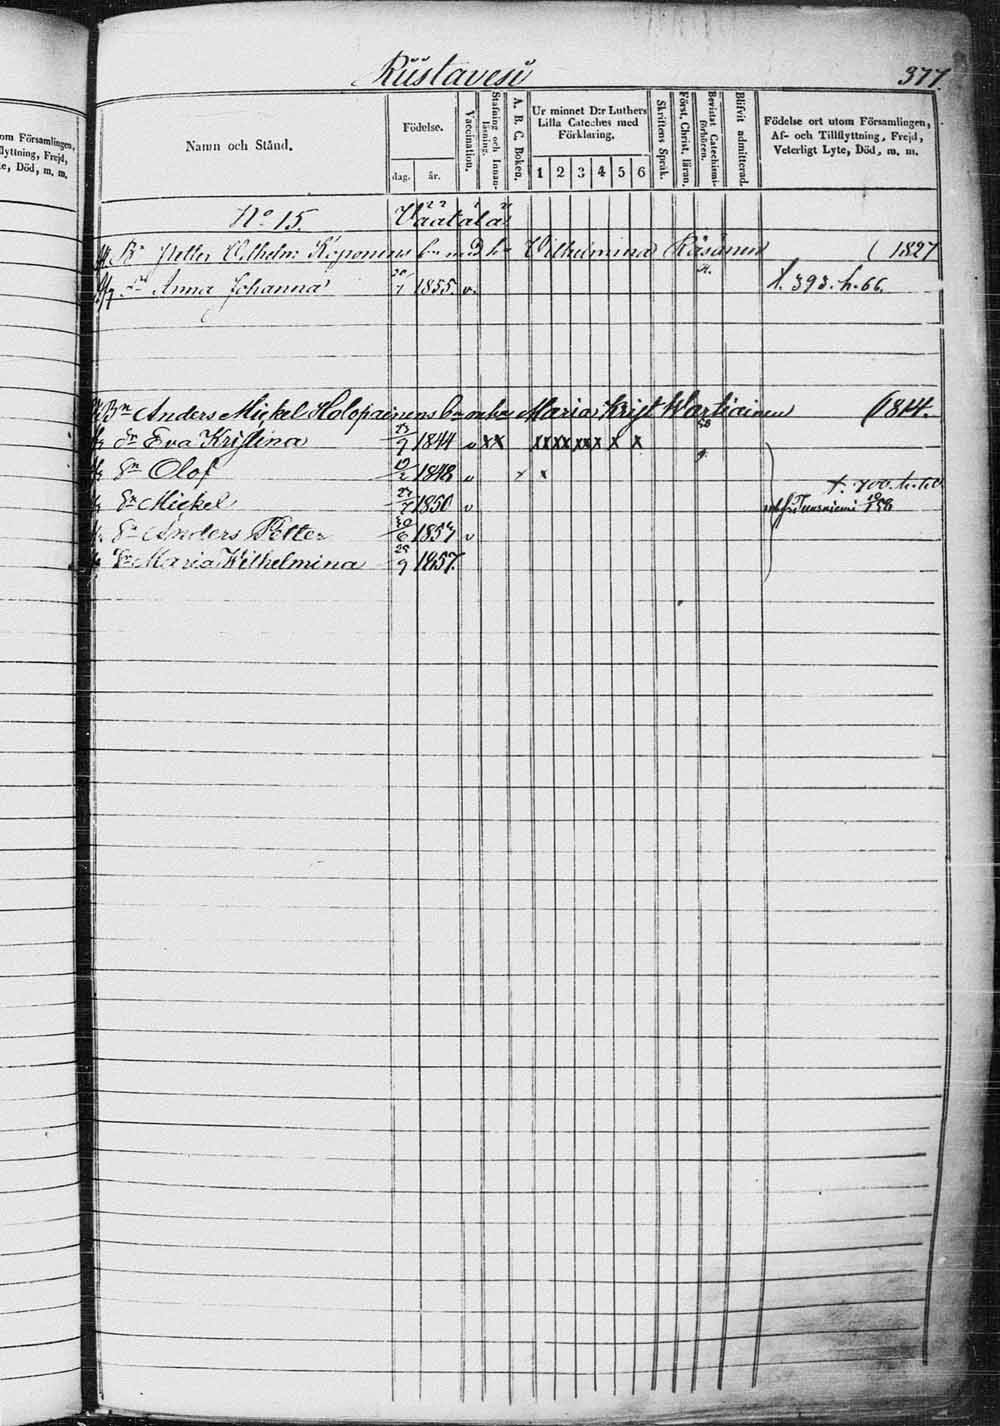 om Församlingen,
flyttning, Frejd,
te, Död, m. m.
Riistavesi
377.
Namn och Stånd.
Födelse.
dag. år.
Vaccination.
Stafning och Innan-läsning.
A. B. C. Boken.
Ur minnet D:r Luthers
Lilla Cateches med
Förklaring.
1 2 3 4 5 6
Skriftens Språk.
Först. Christ. läran.
Bevistat Catechismi-förhören.
Blifvit admitterad.
Födelse ort utom Församlingen,
Af- och Tillflyttning, Frejd,
Veterligt Lyte, Död, m. m.
No 15. Vaatala
Bn Petter Vilhelm Koponens Vilhelmina Räsänen (1827
Dr Anna Johanna 7 1855. v. t. 393. h. 66.
Bn Anders Mickel Holopainens Maria Krist Wartiainen (1814.
Dr Eva Kristina 23/9 1844 v x x x x x x x x x x x
Sn Olof 19/2 1848 v x x
Sn Mickel 27/7 1850 v
Tuusniemi
Sn Anders Petter 30/6 v
Dr Maria Wilhelmina 29/9 1857.